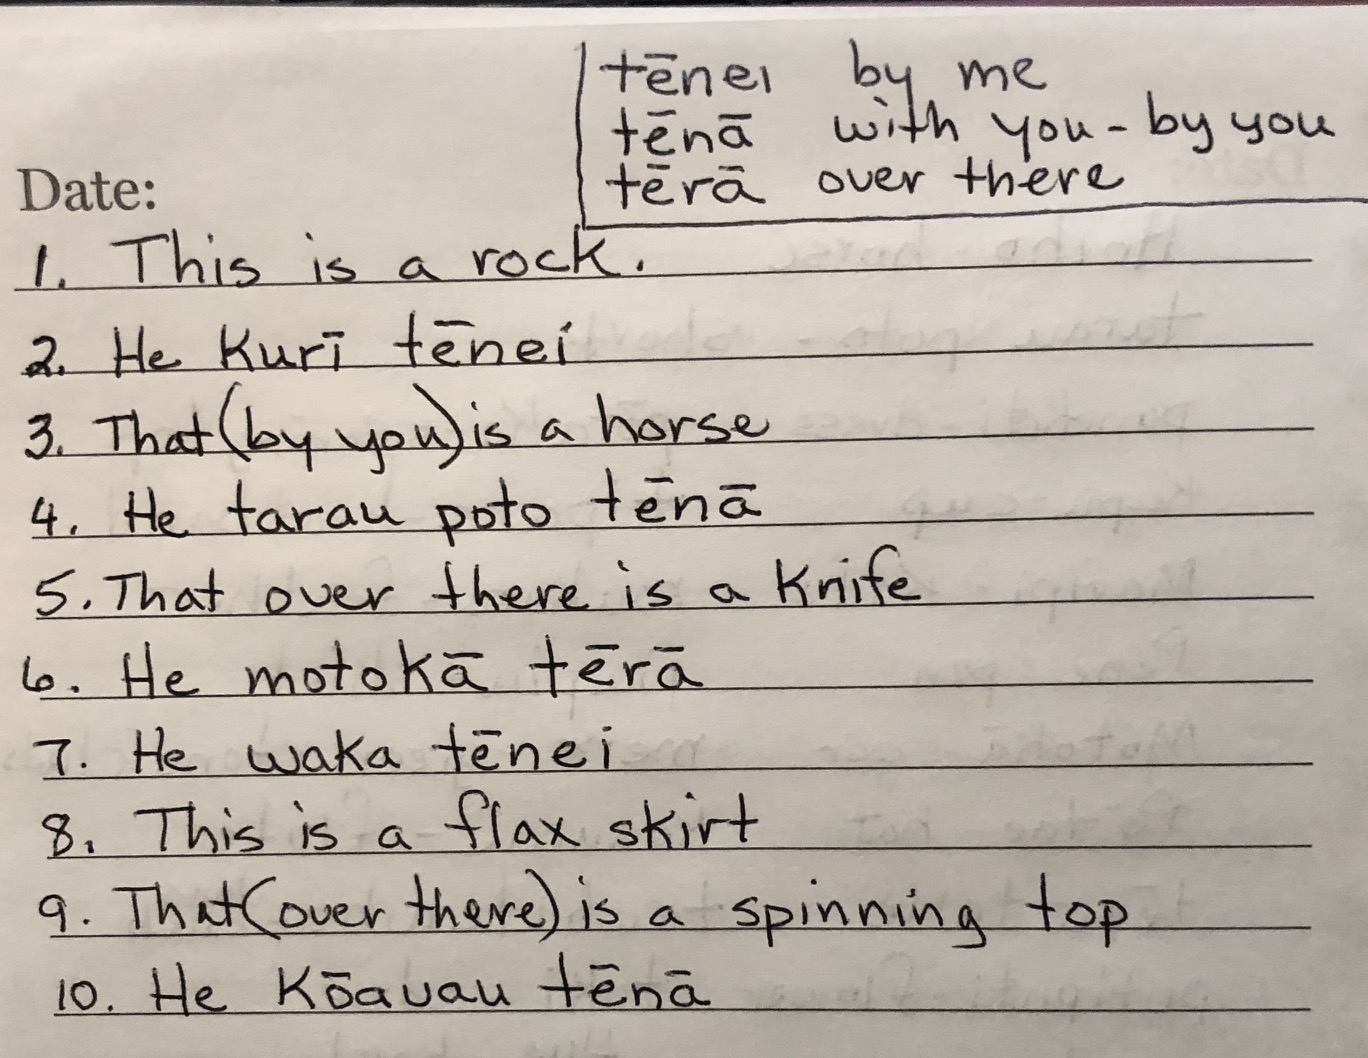 tēnei by me
tēnā with you - by you
tērā over there
Date:
1. This is a rock.
2. He Kurī tēnei
3. That (by you) is a horse
4. He tarau poto tēnā
5. That over there is a Knife
6. He motokā tērā
7. He waka tēnei
8. This is a flax skirt
9. That (over there) is a spinning top
10. He Kōauau tēnā